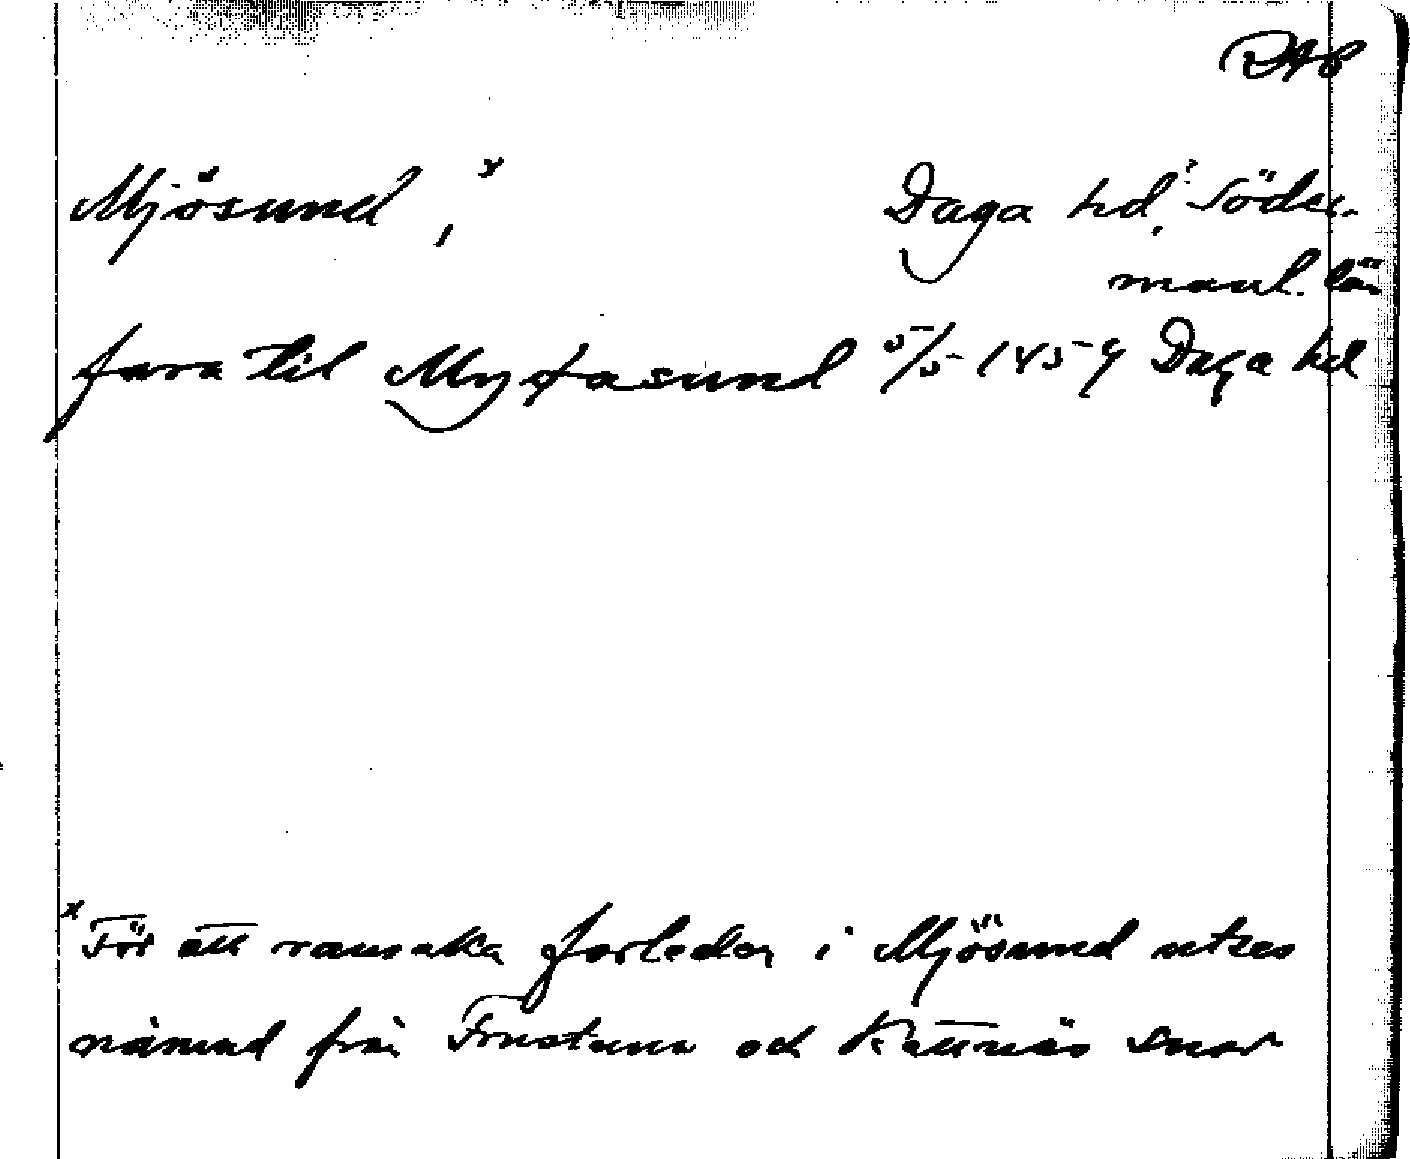 DAB
Mjösund, x Daga hd, Söder-
manl. län
fara til Myøasund 5/5 1459 Daga hd
x För att ransaka farleden i Mjösund utses
nämnd från Frustuna och Kattnäs snar